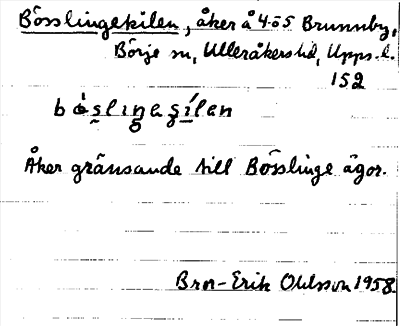 Bösslingekilen, åker å 4-55 Brunnby,
Börje sn, Ulleråkers hd, Upps. l.
152
bèslıngasílan
Åker gränsande till Bösslinge ägor.
Bror-Erik Ohlsson 1958.